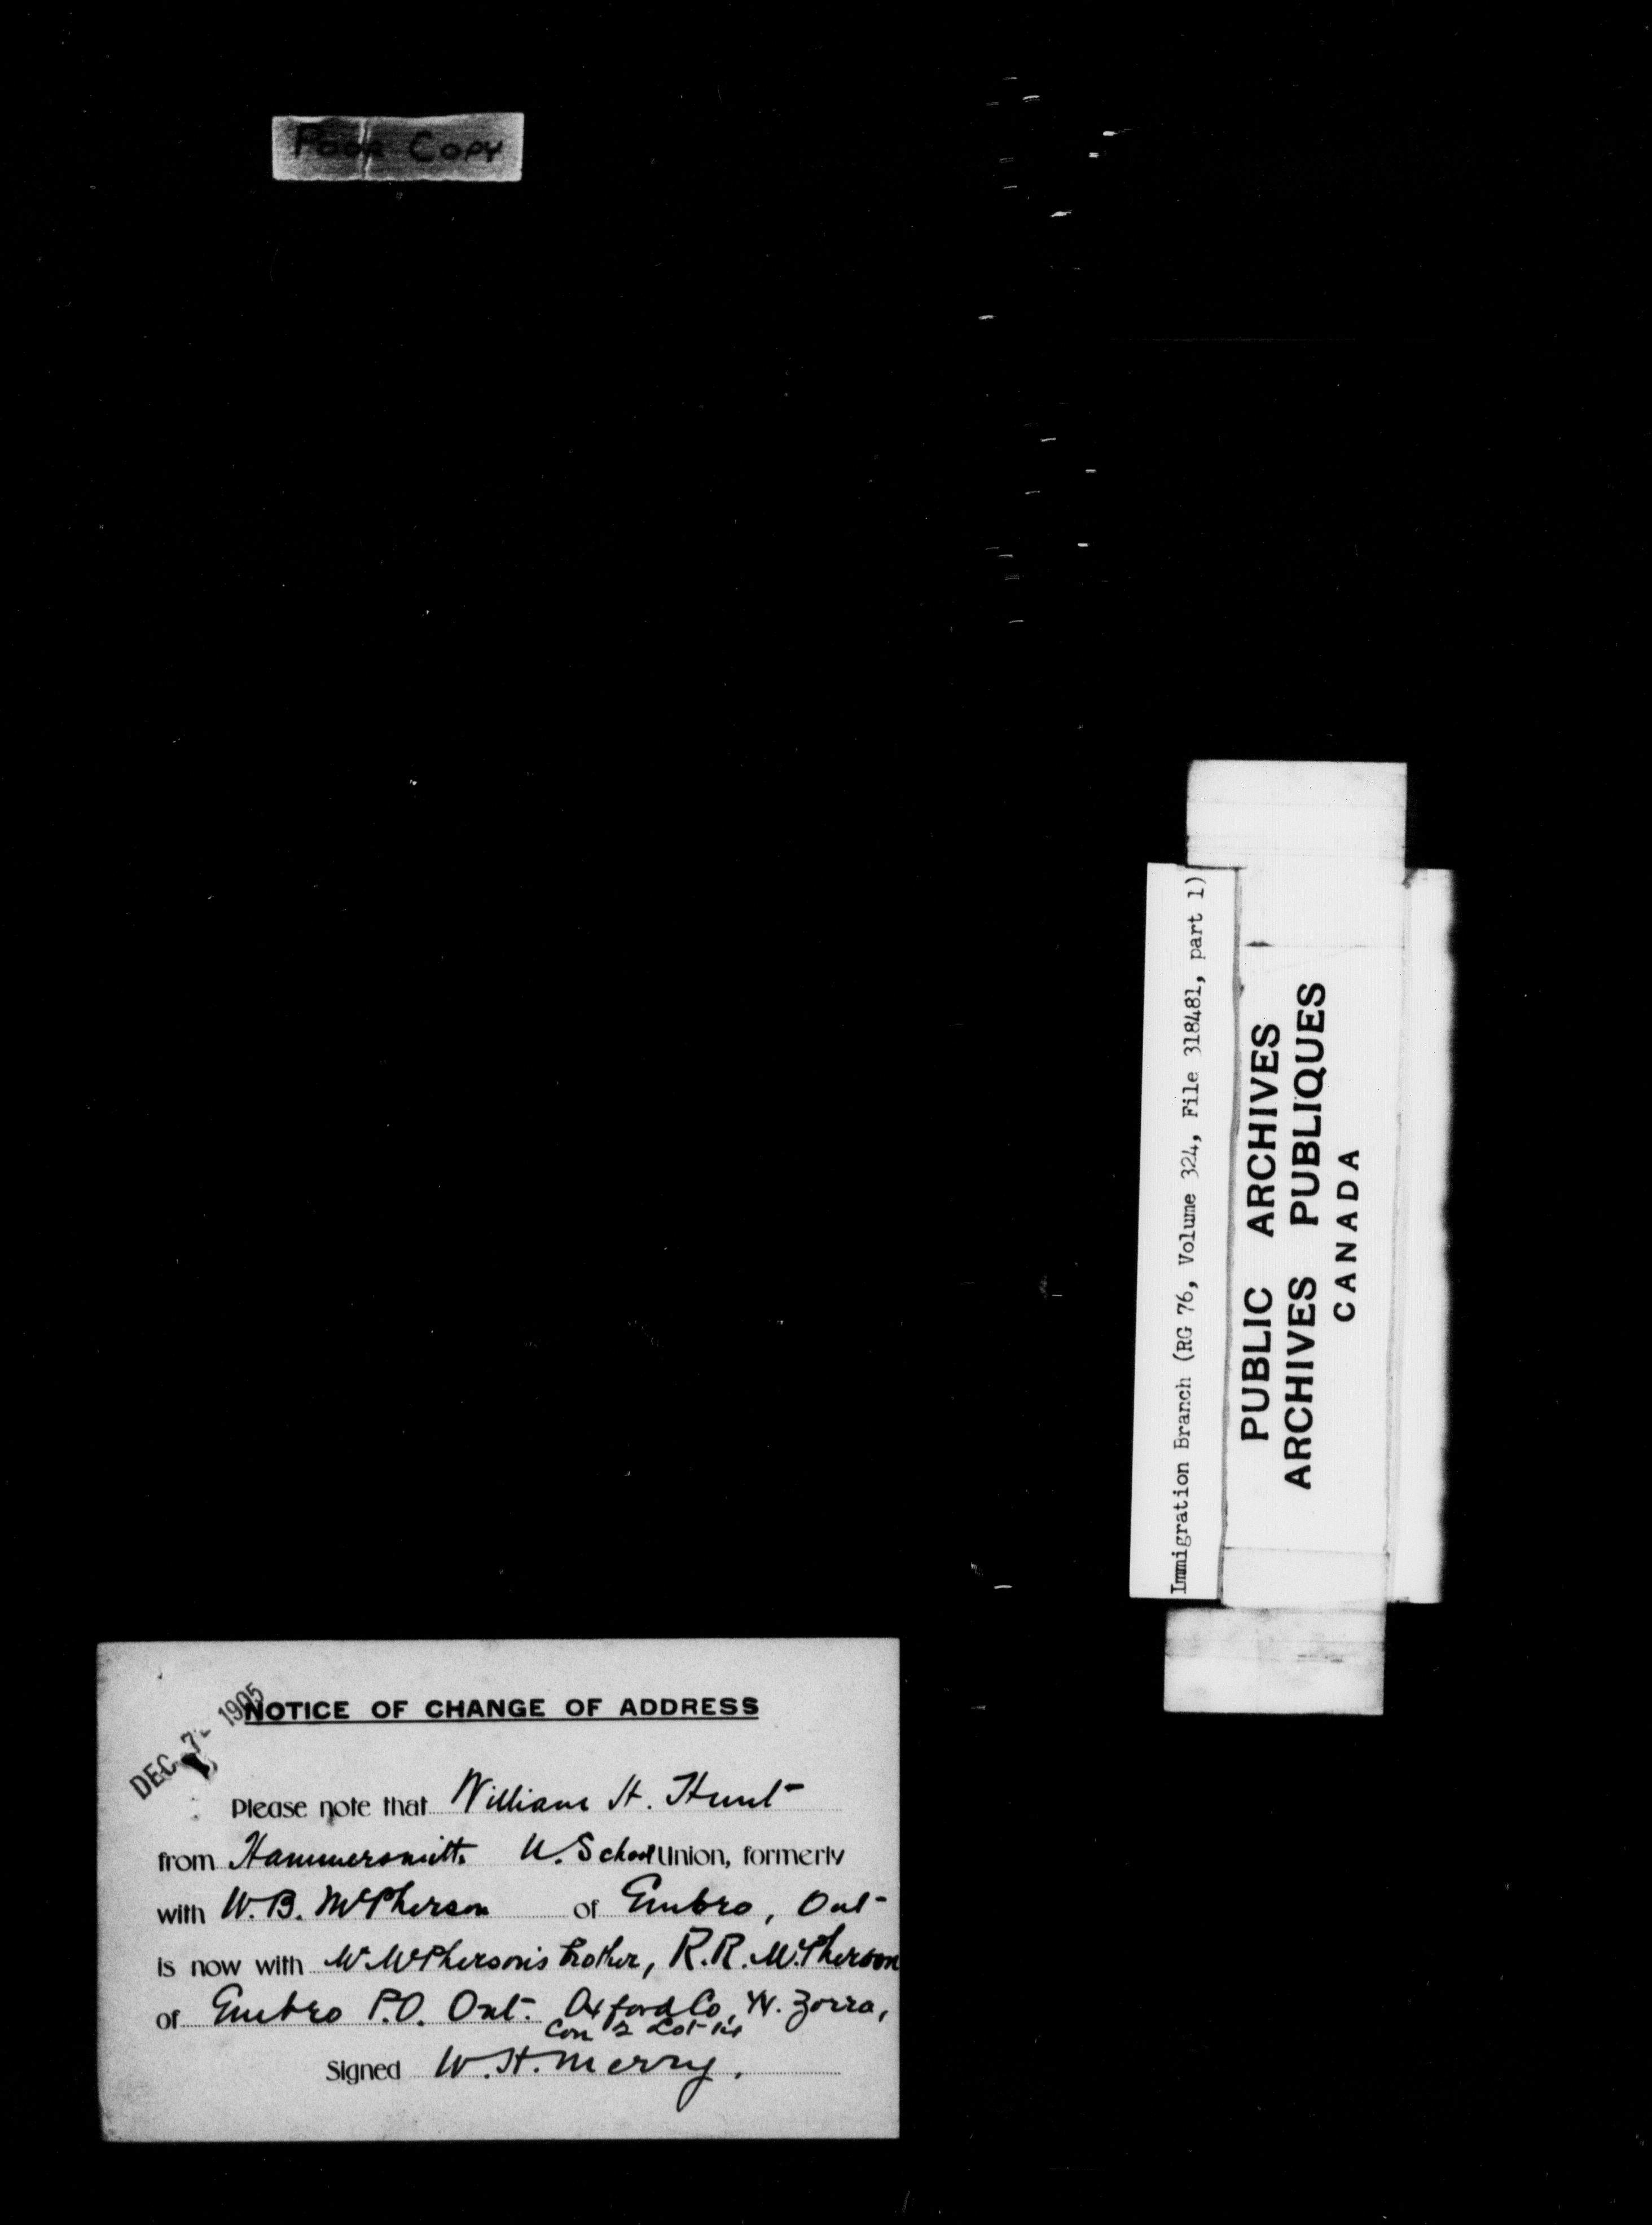 Poor Copy
Immigration Branch (RG 76, Volume 324, File 318481, part 1)
PUBLIC ARCHIVES
ARCHIVES PUBLIQUES
CANADA
DEC 7- 1905
NOTICE OF CHANGE OF ADDRESS
Please note that William H. Hunt
from Hammersmith U. School Union, formerly
with W.B. McPherson of Embro, Ont
is now with Mr McPherson's brother, R.R. McPherson
of Embro P.O. Ont. Oxford Co, W. Zorra,
Con 2 Lot
Signed W.H. Merry.